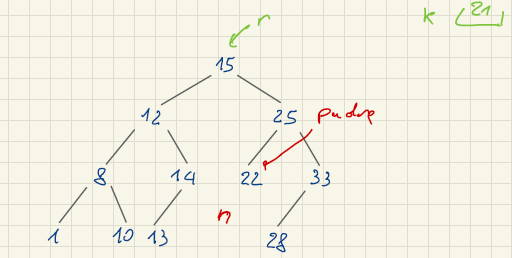 r k 21
15
12 25 padre
8 14 22 33
n
1 10 13 28